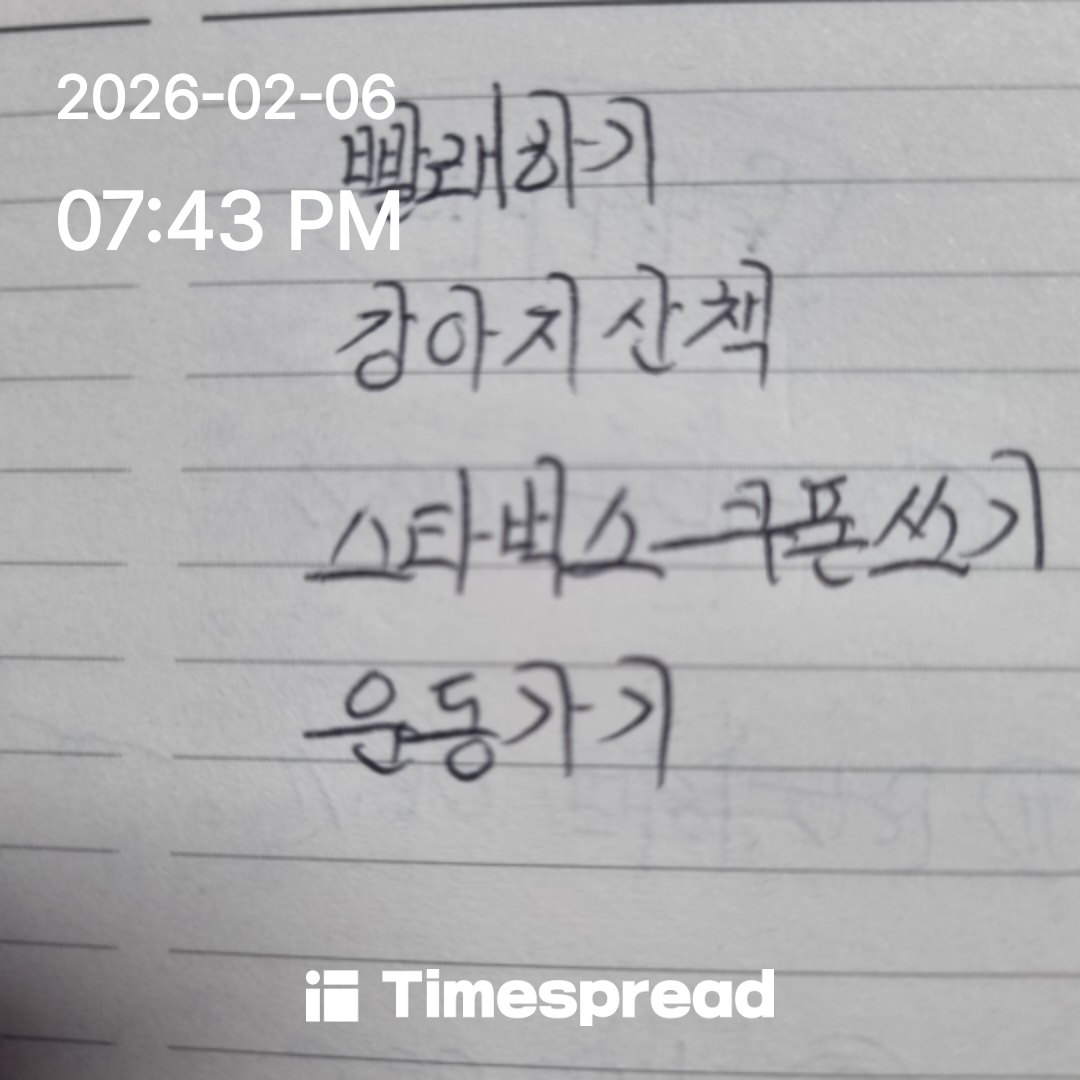 2026-02-06
빨래하기
07:43 PM
강아지 산책
스타벅스 쿠폰쓰기
운동가기
Timespread